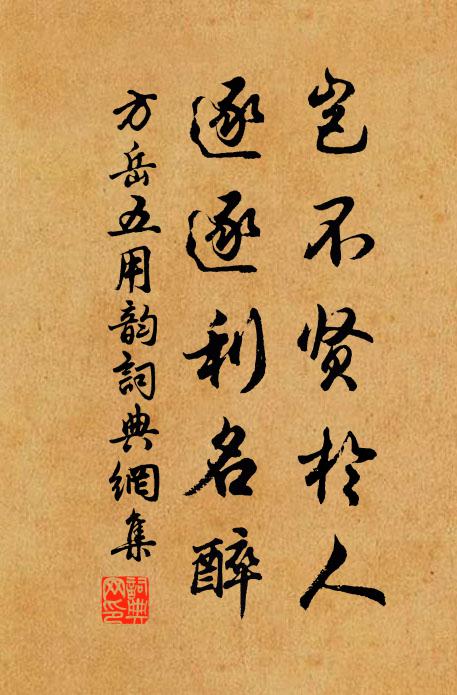 岂不贤於人
逐逐利名醉
方岳五用韵詞典網集
詞典网印